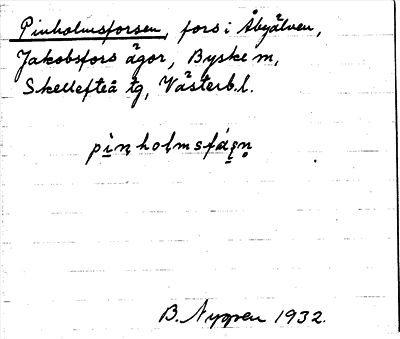 Pinholmsforsen, fors i Åbyälven,
Jakobsfors ägor, Byske sn,
Skellefteå tg, Västerb.l.
B. Nyppen 1932.